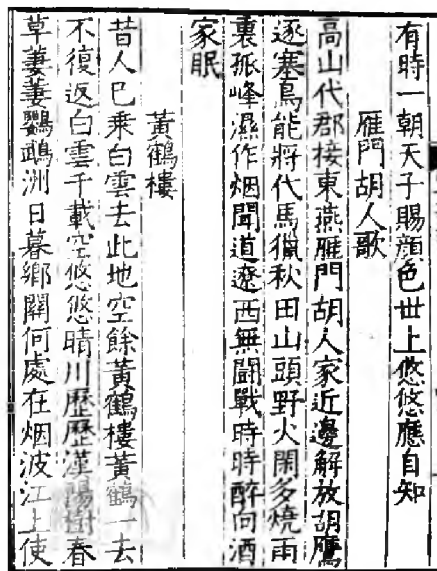 有時一朝天子賜顔色世上悠悠應自知
雁門胡人歌
高山代郡接東燕雁門胡人家近邊解放胡鷹
逐塞鳥能將代馬獵秋田山頭野火閑多燒雨
裏孤峰濕作烟聞道遼西無鬭戰時時醉向酒
家眠
黃鶴樓
昔人巳乘白雲去此地空餘黃鶴樓黃鶴一去
不復返白雲千載空悠悠晴川歷歷漢陽樹春
草萋萋鸚鵡洲日暮鄉關何處在烟波江上使